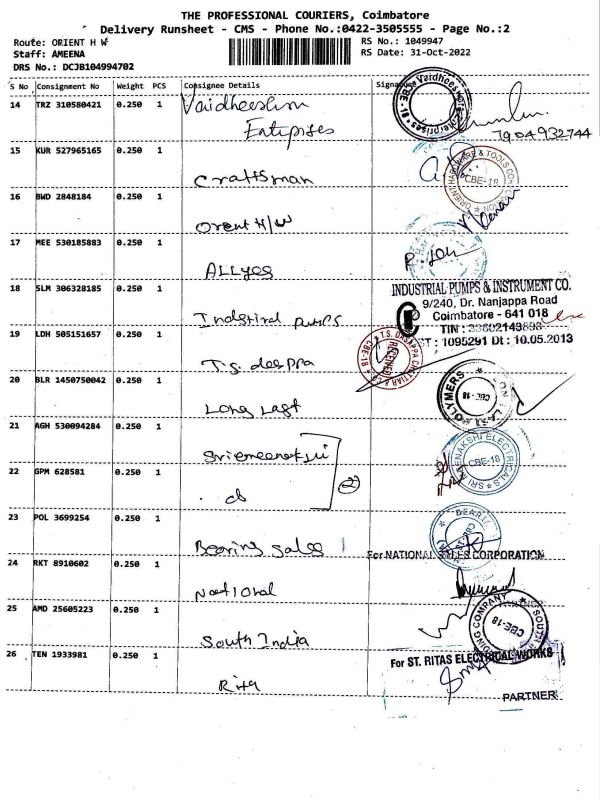 THE PROFESSIONAL COURIERS, Coimbatore
Delivery Runsheet - CMS - Phone No.:0422-3505555 - Page No.:2
Route: ORIENT H W
RS No.: 1049947
Staff: AMEENA
RS Date: 31-Oct-2022
DRS No.: DCJB104994702
S No Consignment No Weight PCS Consignee Details Signature
14 TRZ 310580421 0.250 1 Vaidheeshwn
Entiprises
7904932744
15 KUR 527965165 0.250 1
Craftsman
ORIENT HARDWARE & TOOLS CORPORATION
CBE-18
16 BWD 2848184 0.250 1
Orent H/W
17 MEE 530185883 0.250 1
Allyes
18 SLM 306328185 0.250 1
Indstiral pumps
INDUSTRIAL PUMPS & INSTRUMENT CO.
9/240, Dr. Nanjappa Road
Coimbatore - 641 018
TIN : 33602143898
ST : 1095291 Dt : 10.05.2013
19 LDH 505151657 0.250 1
T.S. deeppa
RECEIVED
CBE-18
20 BLR 1450750042 0.250 1
Long Last
POLYMERS
CBE-18
21 AGH 530094284 0.250 1
Sriemeenatsui
SRI MEENAKSHI ELECTRICALS
CBE-18
22 GPM 628581 0.250 1
do
(2)
23 POL 3699254 0.250 1
Bearing sales
For NATIONAL SALES CORPORATION
24 RKT 8910602 0.250 1
National
25 AMD 25605223 0.250 1
South India
CBE-18
26 TEN 1933981 0.250 1
Rita
For ST. RITAS ELECTRICAL WORKS
PARTNER